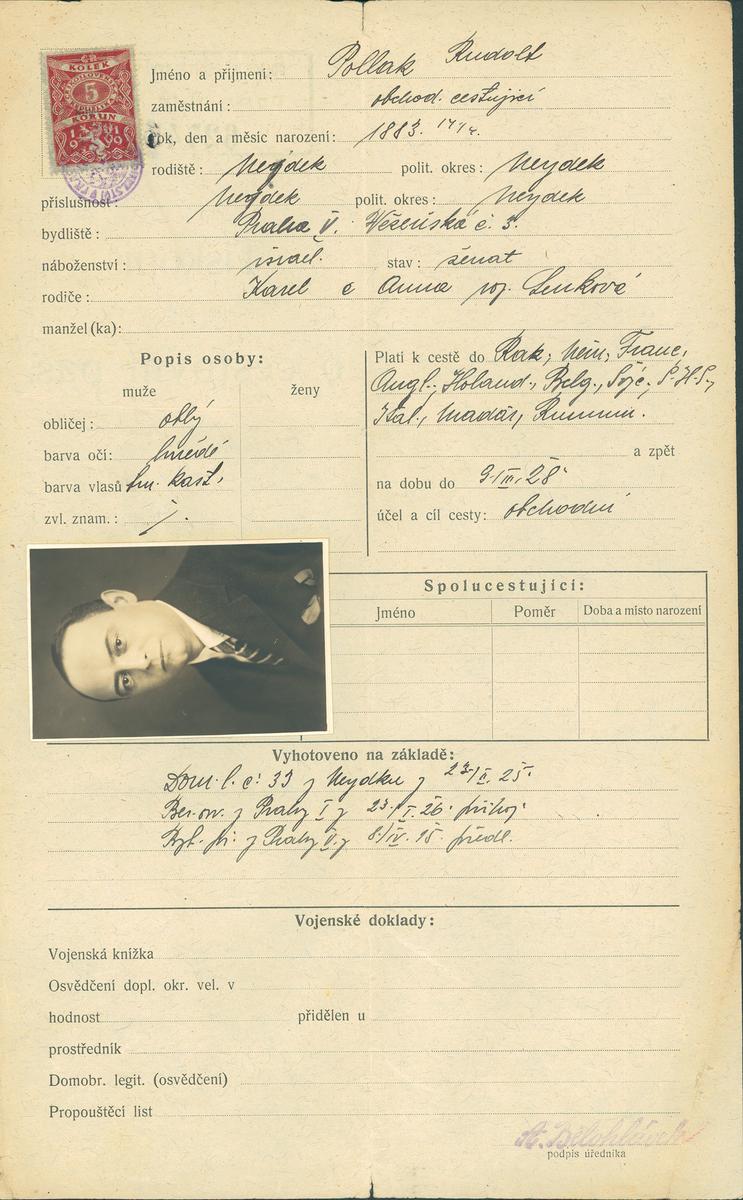 KOLEK
5
KORUN
1 9 1 9
Jméno a příjmení: Pollak Rudolf
zaměstnání: obchod. cestující
rok, den a měsíc narození: 1883.
rodiště: Neydek polit. okres: Neydek
příslušnost: Neydek polit. okres: Neydek
bydliště: Praha V. Vězeňská č. 3.
náboženství: israel. stav: ženat
rodiče: Karel a Anna roz. Lenková
manžel(ka):
Popis osoby:
muže ženy
obličej: oblý
barva očí: hnědé
barva vlasů tm. kašt.
zvl. znam.:
Platí k cestě do Rak., Něm., Franc.,
Angl., Holand., Belg., Švýc., S.H.S.,
Ital., Maďar., Rumun.
a zpět
na dobu do 9./III. 28
účel a cíl cesty: obchodní
Spolucestující:
Jméno Poměr Doba a místo narození
Vyhotoveno na základě:
Dom. l. č: 33 z Neydku z 23./II. 25.
Ber. ov. z Prahy I z 23./I. 26.
z Prahy V. z 8./IV. 15. předl.
Vojenské doklady:
Vojenská knížka
Osvědčení dopl. okr. vel. v
hodnost přidělen u
prostředník
Domobr. legit. (osvědčení)
Propouštěcí list
podpis úředníka